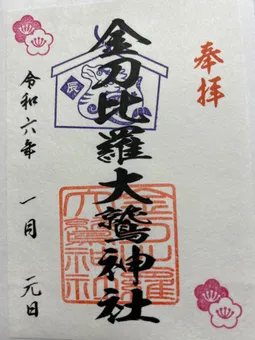 奉拝
金刀比羅大鷲神社
辰
令和六年 一月 元日